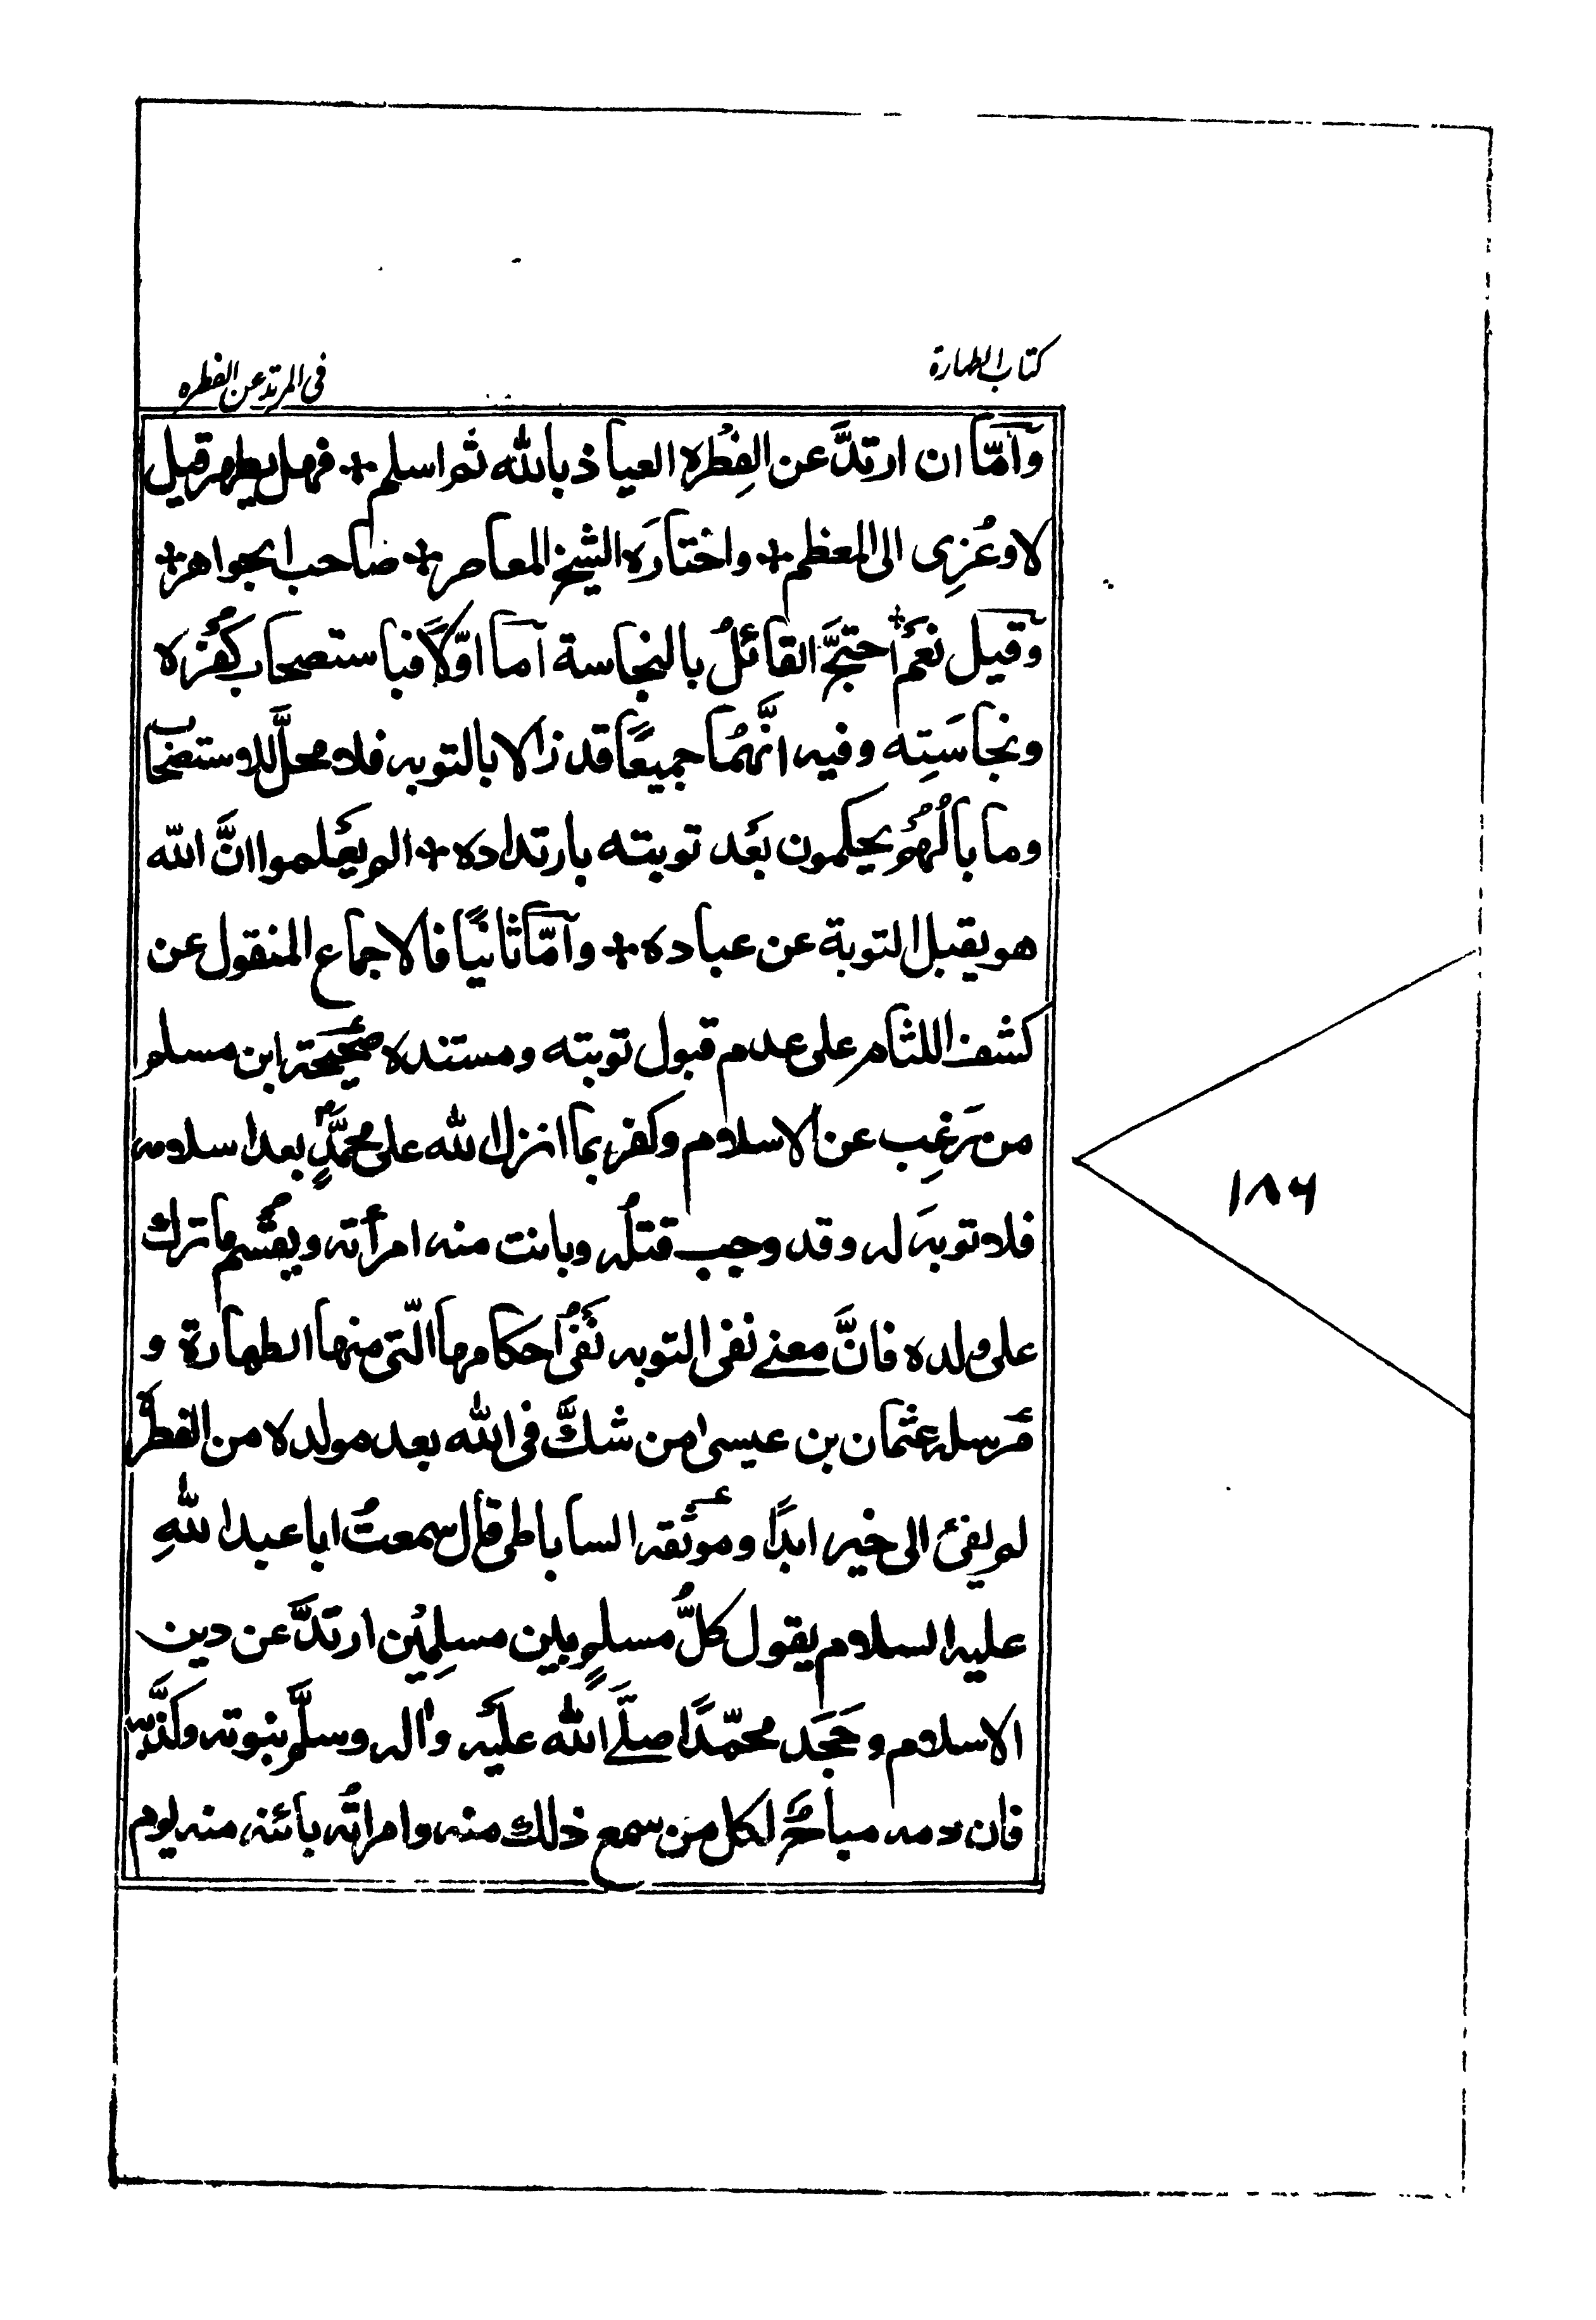 كتاب الطهارة
في المرتد عن الفطره
وآمّا ان ارتدَّ عن الفِطْره العياذ بالله ثم اسلم + فهل يطهر قيل
لا وعُزِى الى المعظم + واختارَه الشيخ المعاصر + صاحب الجواهر +
وَقيل نعَم + احتجَّ القائلُ بالنجاسة آما اوّلًا فباستصحاب كُفْره
ونجاسَتِه وفيه انَّهُما جميعًا قد زالا بالتوبه فلا محلَّ للاستصحاب
وما بالُهُم يحكمون بَعْد توبته بارتداده + الم يَعْلموا انَّ الله
هو يقبل التوبة عن عباده + وآمّا ثانيًا فالاجماع المنقول عن
كشف اللثام على عدم قبول توبته ومستنده صحيحة ابن مسلم
من رَغِب عن الاسلام وكفر بما انزل الله على محمَّدٍ ص بعد اسلامه
فلا توبَه له وقد وجب قتلُه وبانت منه امرأته ويقسم ما ترك
على ولده فانَّ معنے نفى التوبه نَفْىُ احكامها الّتى منها الطهارة و
مرسله عثمان بن عيسى من شكَّ فى الله بعد مولده من الفطرة
لم يفئ الى خير ابدًا وموثقه الساباطى قال سمعتُ ابا عبد اللهِ
عليه السلام يقول كلُّ مسلمٍ بين مسلِمَيْن ارتدَّ عن دين
الاسلام وجَحَد محمّدًا صلَّے الله عليْه واله وسلَّم نبوته وكذَّبه
فان دمه مباحٌ لكل من سمع ذلك منه وامراتُه بائنه منه يوم
١٨٦